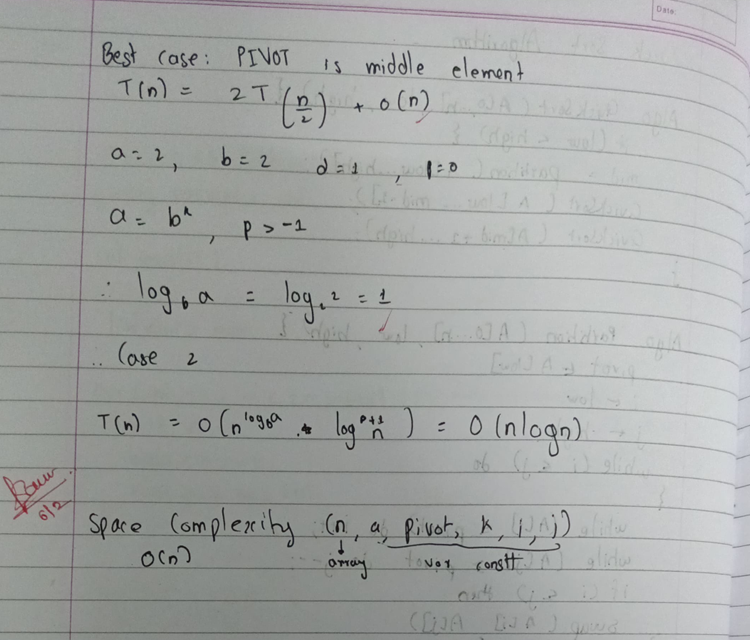 Date:
Best case: PIVOT is middle element
T(n) = 2T(n/2) + O(n)
a = 2, b = 2 d = 1, p = 0
a = b^k, p > -1
∴ log_b a = log_2 2 = 1
∴ Case 2
T(n) = O(n^log_b a . log^p+1 n) = O(nlogn)
6/2
Space Complexity (n, a, pivot, k, i, j)
O(n) array var constt